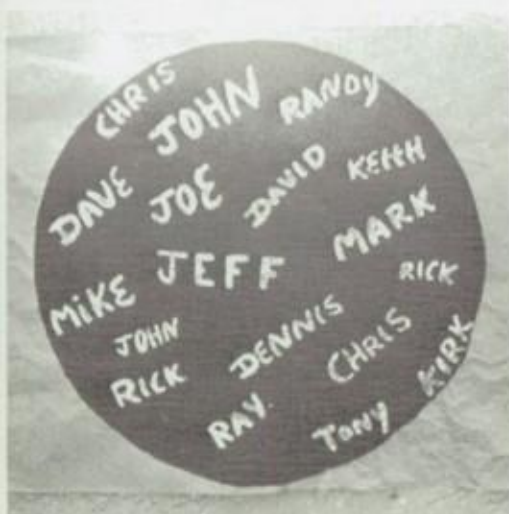 CHRIS
JOHN
RANDY
DAVE
JOE
DAVID
KEITH
MARK
JEFF
RICK
MIKE
JOHN
DENNIS
CHRIS
KIRK
RICK
RAY.
TONY